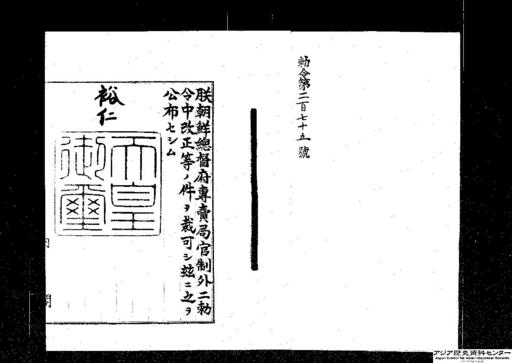 勅令第二百七十五號
朕朝鮮總督府專賣局官制外二勅
令中改正等ノ件ヲ裁可シ茲ニ之ヲ
公布セシム
裕仁
天皇
御璽
アジア歴史資料センター
Japan Center for Asian Historical Records